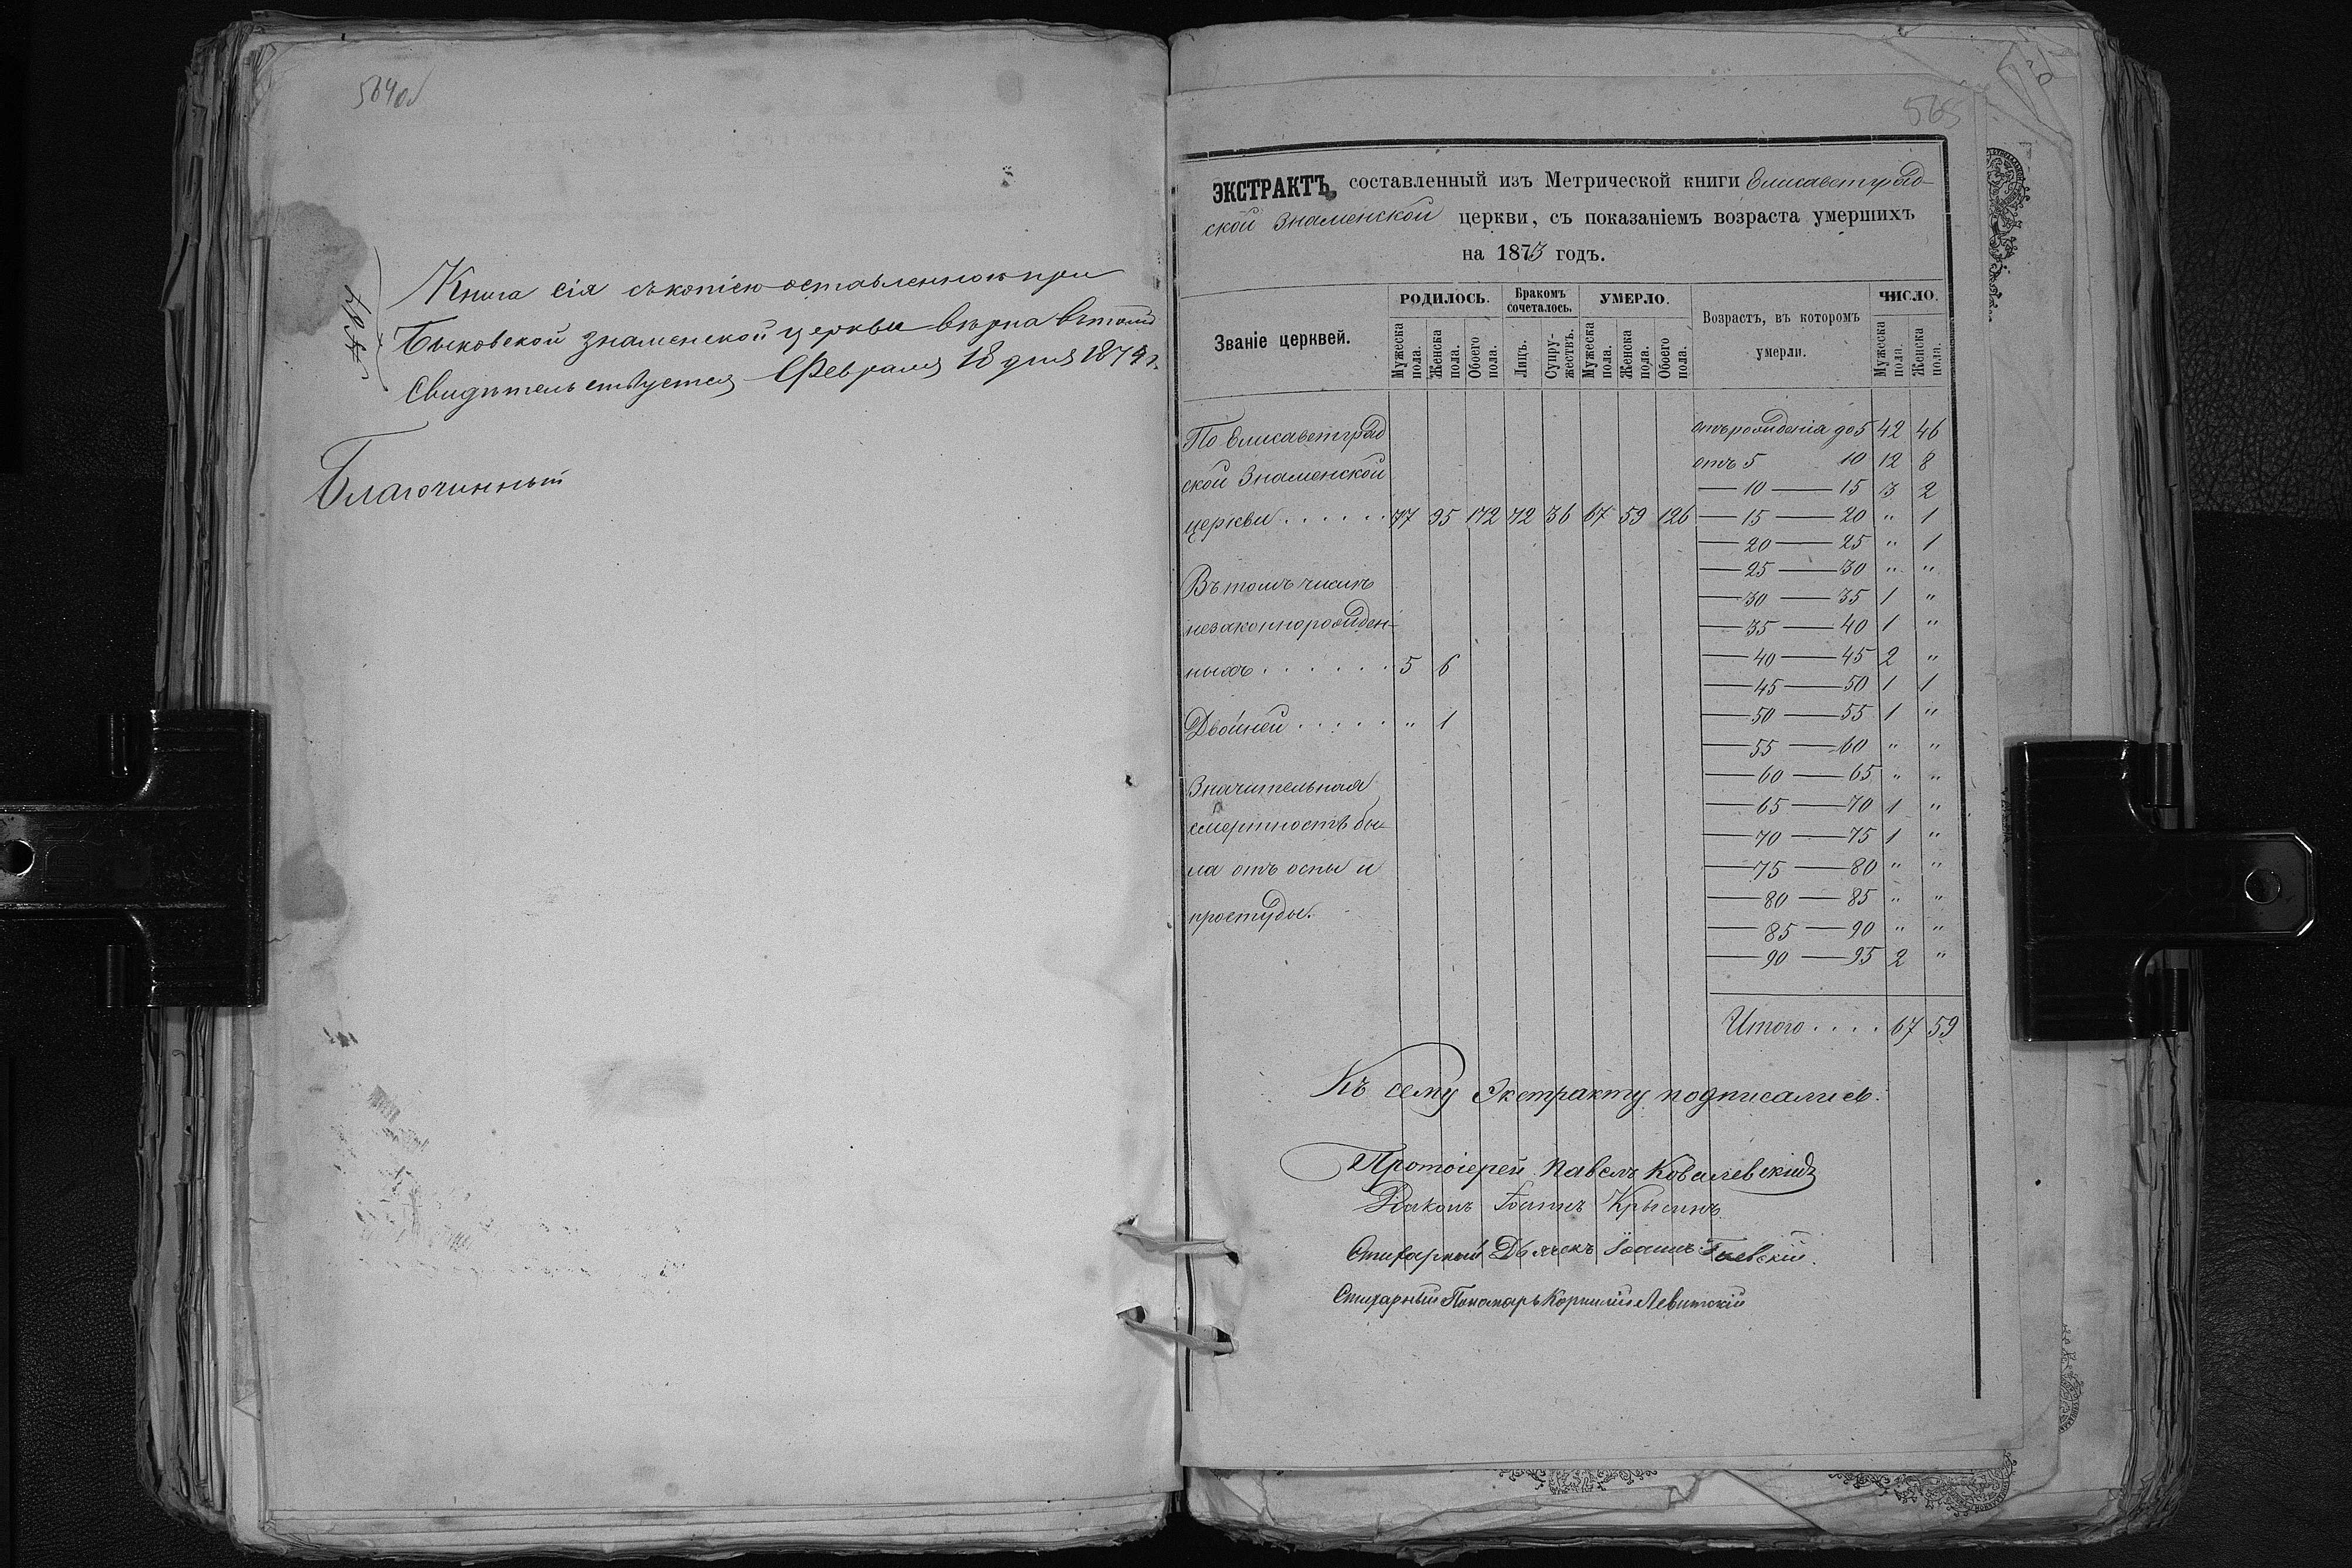 564об
Книга сія съ копіею оставленною при
Быковской знаменской церкви вѣрна въ томъ
Свидѣтельствуется Февраля 18 дня 1874 г.
Благочинный
565
ЭКСТРАКТЪ, составленный изъ Метрической книги Елисаветград-
ской Знаменской церкви, съ показаніемъ возраста умершихъ
на 1873 годъ.
Званіе церквей.
РОДИЛОСЬ. Бракомъ сочеталось. УМЕРЛО. Возрастъ, въ которомъ умерли. ЧИСЛО.
Мужеска пола. Женска пола. Обоего пола. Лицъ. Супружествъ. Мужеска пола. Женска пола. Обоего пола. Мужеска пола. Женска пола.
По Елисаветград
ской Знаменской
церкви . . . . . . 77 95 172 72 36 67 59 126
Въ томъ числѣ
незаконнорожден-
ныхъ . . . . . . . 5 6
Двойней . . . . . " 1
Значительная
смертность бы-
ла отъ оспы и
простуды.
отъ рожденія до 5 42 46
отъ 5 10 12 8
— 10 — 15 3 2
— 15 — 20 " 1
— 20 — 25 " 1
— 25 — 30 " "
— 30 — 35 1 "
— 35 — 40 1 "
— 40 — 45 2 "
— 45 — 50 1 1
— 50 — 55 1 "
— 55 — 60 " "
— 60 — 65 " "
— 65 — 70 1 "
— 70 — 75 1 "
— 75 — 80 " "
— 80 — 85 " "
— 85 — 90 " "
— 90 — 95 2 "
Итого . . . . 67 59
Къ сему Экстракту подписались:
Протоіерей Павелъ Ковалевскій
Діаконъ Іоаннъ Крысинъ
Стихарный Дьячекъ Іоаннъ Гаевскій.
Стихарный Пономарь Корнилій Левитскій